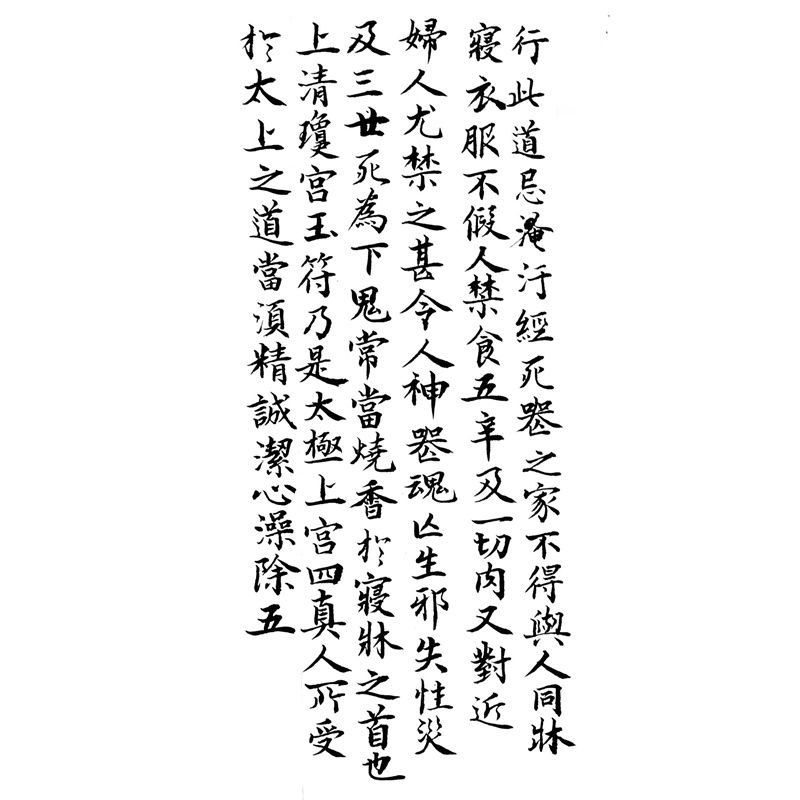 行此道忌淹汙經死器之家不得與人同牀
寢衣服不假人禁食五辛及一切肉又對近
婦人尤禁之甚令人神器魂亡生邪失性災
及三世死為下鬼常當燒香於寢牀之首也
上清瓊宮玉符乃是太極上宮四真人所受
於太上之道當須精誠潔心澡除五